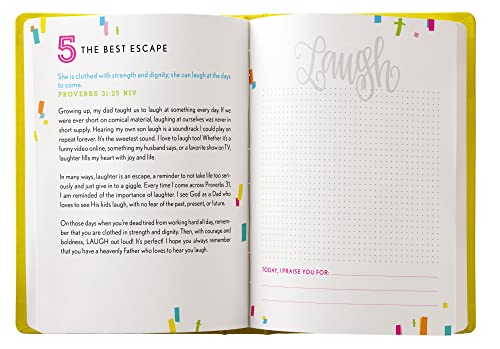 5 THE BEST ESCAPE
She is clothed with strength and dignity; she can laugh at the days
to come.
PROVERBS 31:25 NIV
Growing up, my dad taught us to laugh at something every day. If we
were ever short on comical material, laughing at ourselves was never in
short supply. Hearing my own son laugh is a soundtrack I could play on
repeat forever. It's the sweetest sound. I love to laugh too! Whether it's a
funny video online, something my husband says, or a favorite show on TV,
laughter fills my heart with joy and life.
In many ways, laughter is an escape, a reminder to not take life too seri-
ously and just give in to a giggle. Every time I come across Proverbs 31,
I am reminded of the importance of laughter. I see God as a Dad who
loves to see His kids laugh, with no fear of the past, present, or future.
On those days when you're dead tired from working hard all day, remem-
ber that you are clothed in strength and dignity. Then, with courage and
boldness, LAUGH out loud! It's perfect! I hope you always remember
that you have a heavenly Father who loves to hear you laugh.
Laugh
TODAY, I PRAISE YOU FOR: